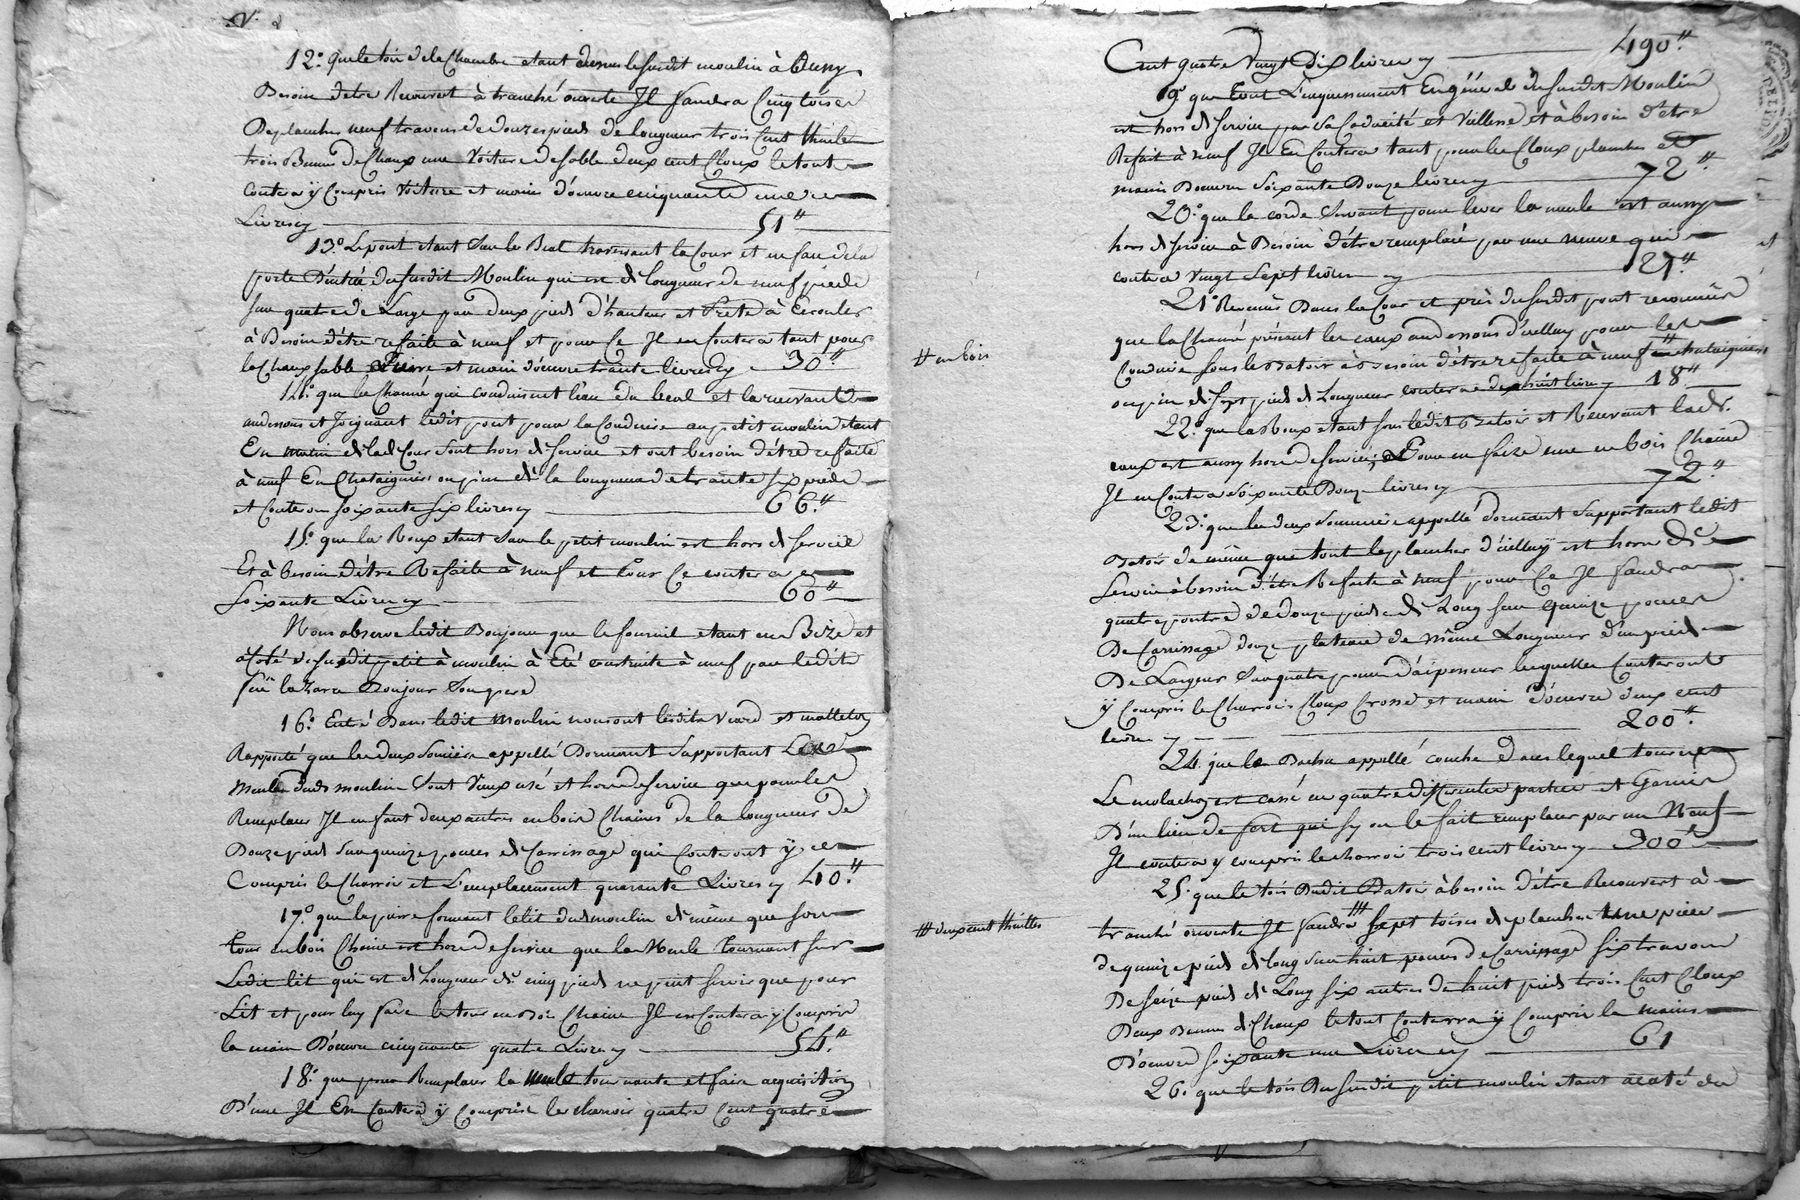 12.° que le toit de la Chambre etant dessus le susdit moulin à aussy
Besoin d'etre Recouvert à tranché ouverte Jl faudra Cinq toises
De planches neuf travons de douze pieds de longueur trois Cent thuiles
trois Bennes de Chaux une Voiture de sable deux cent Cloux le tout
contera ÿ Compris Voiture et main d'oeuvre cinquante une
Livres 51.#
13.° Le pont etant sur le Beal traversant la Cour et en face de la
porte D'entrée du susdit Moulin qui est de longueur de neuf pieds
sur quatre de Large par deux pieds d'hauteur et Prete à Ecrouler
à Besoin d'être refaite à neuf et pour Ce Jl en Coutera tant pour
la Chaux sable Pierre et main d'oeuvre trante livres 30.#
14.° que la Chaîné qui conduisent l'eau du beal et la recevant
audessous et Joignant ledit pont pour la Conduire au petit moulin etant
En de lad Cour sont hors de service et ont besoin d'être refaite
à neuf En Chataignier ou pin de la longueur de trante six pieds
et Coutera soixante six livres 66.#
15.° que la Roux etant sur le petit moulin est hors de service
Et à besoin d'être Refaite à neuf et Pour Ce coutera
soixante Livres 60.#
Nous observe ledit Boujour que le fournil etant en Bize et
à Coté du susdit petit à moulin à Eté construite à neuf par ledit
feü lazare Boujour son pere
16.° Entré Dans ledit moulin nous ont lesdits Viard et
Rapporté que les deux Somiers appellé Dormant Supportant Les
Meules dud moulin Sont Vieux usé et hors de service que pour les
Remplacer Jl en faut deux autres en bois Chaines de la longueur de
Douze pieds sur quinze pouces de Carrissage qui Conteront ÿ
Compris le Charroir et L'emplacement quarante Livres 40.#
17.° que la pierre formant le lit dud moulin de même que son
tour en bois Chaine est hors de service que la Meule tournant sur
Ledit lit qui est de Longueur de cinq pieds ne peut servir que pour
Lit et pour luy faire le tour en Bois Chaine Jl en Contera ÿ Compris
la main D'oeuvre cinquante quatre Livres 54.#
18.° que pour Remplacer la meule tournante et faire acquisition
D'une Jl En Contera ÿ Compris les charroir quatre Cent quatre
Cent quatre Vingt Dix livres 490.#
19.° que tout L'enguenement En général du susdit Moulin
est hors de service par sa Caducité et Vieillesse et à besoin d'être
Refait à neuf Jl En Contera tant pour les Cloux planches et
main D'oeuvre Soixante Douze livres 72.#
20.° que la corde servant pour lever la meule est aussy
hors de service à Besoin d'être remplacé par une neuve qui
contera Vingt Sept livres 27.#
21.° Revenus Dans la Cour et près du susdit pont reconnûe
que la Chaîné prénant les eaux audessous d'icelluy pour les
# en bois
Conduire sous le Batoir à Besoin d'être refaite à neuf # chataignier
ou pin de sept pieds de Longueur contera dix huit livres 18.#
22.° que la Roux etant sous ledit Batoir et Recevant lad.
eaux est aussy hors de service; Pour en faire une en bois Chaine
Jl en Contera soixante Douze livres 72.#
23.° que les deux Sommiers appellé dormant Supportant ledit
Batoir de même que tout le plancher d'icelluy est hors de
service à besoin d'être Refaite à neuf pour Ce Jl faudra
quatre poutre de douze pieds de Long sur quinze pouces
De Carrissage douze plateau de même Longueur d'un pied
De Largeur Sur quatre pouce d'aipesseur lesquelles Conteront
ÿ Compris le Charrois Cloux Crosse et main d'oeuvre deux cent
livres 200.#
24.° que le Bacha appellé couche dans lequel tourne
Le molachoz est cassé en quatre differentes parties et Garnis
D'un lien de fert qui sy on le fait remplacer par un Neuf
Jl contera y compris le charroi trois cent livres 300.#
25.° que le toit Dudit Batoir à besoin d'être Recouvert à
# deux cent thuilles
tranché ouverte Jl faudra # sept toises de planches une piece
de quinze pieds de long sur huit pouces de Carrissage six travons
De seize pieds de Long six autres de huit pieds trois Cent Cloux
Deux Bennes de Chaux le tout Conterra ÿ Compris la mains
D'oeuvre soixante une Livres 61
26.° que le toit Du susdit petit moulin etant acoté du